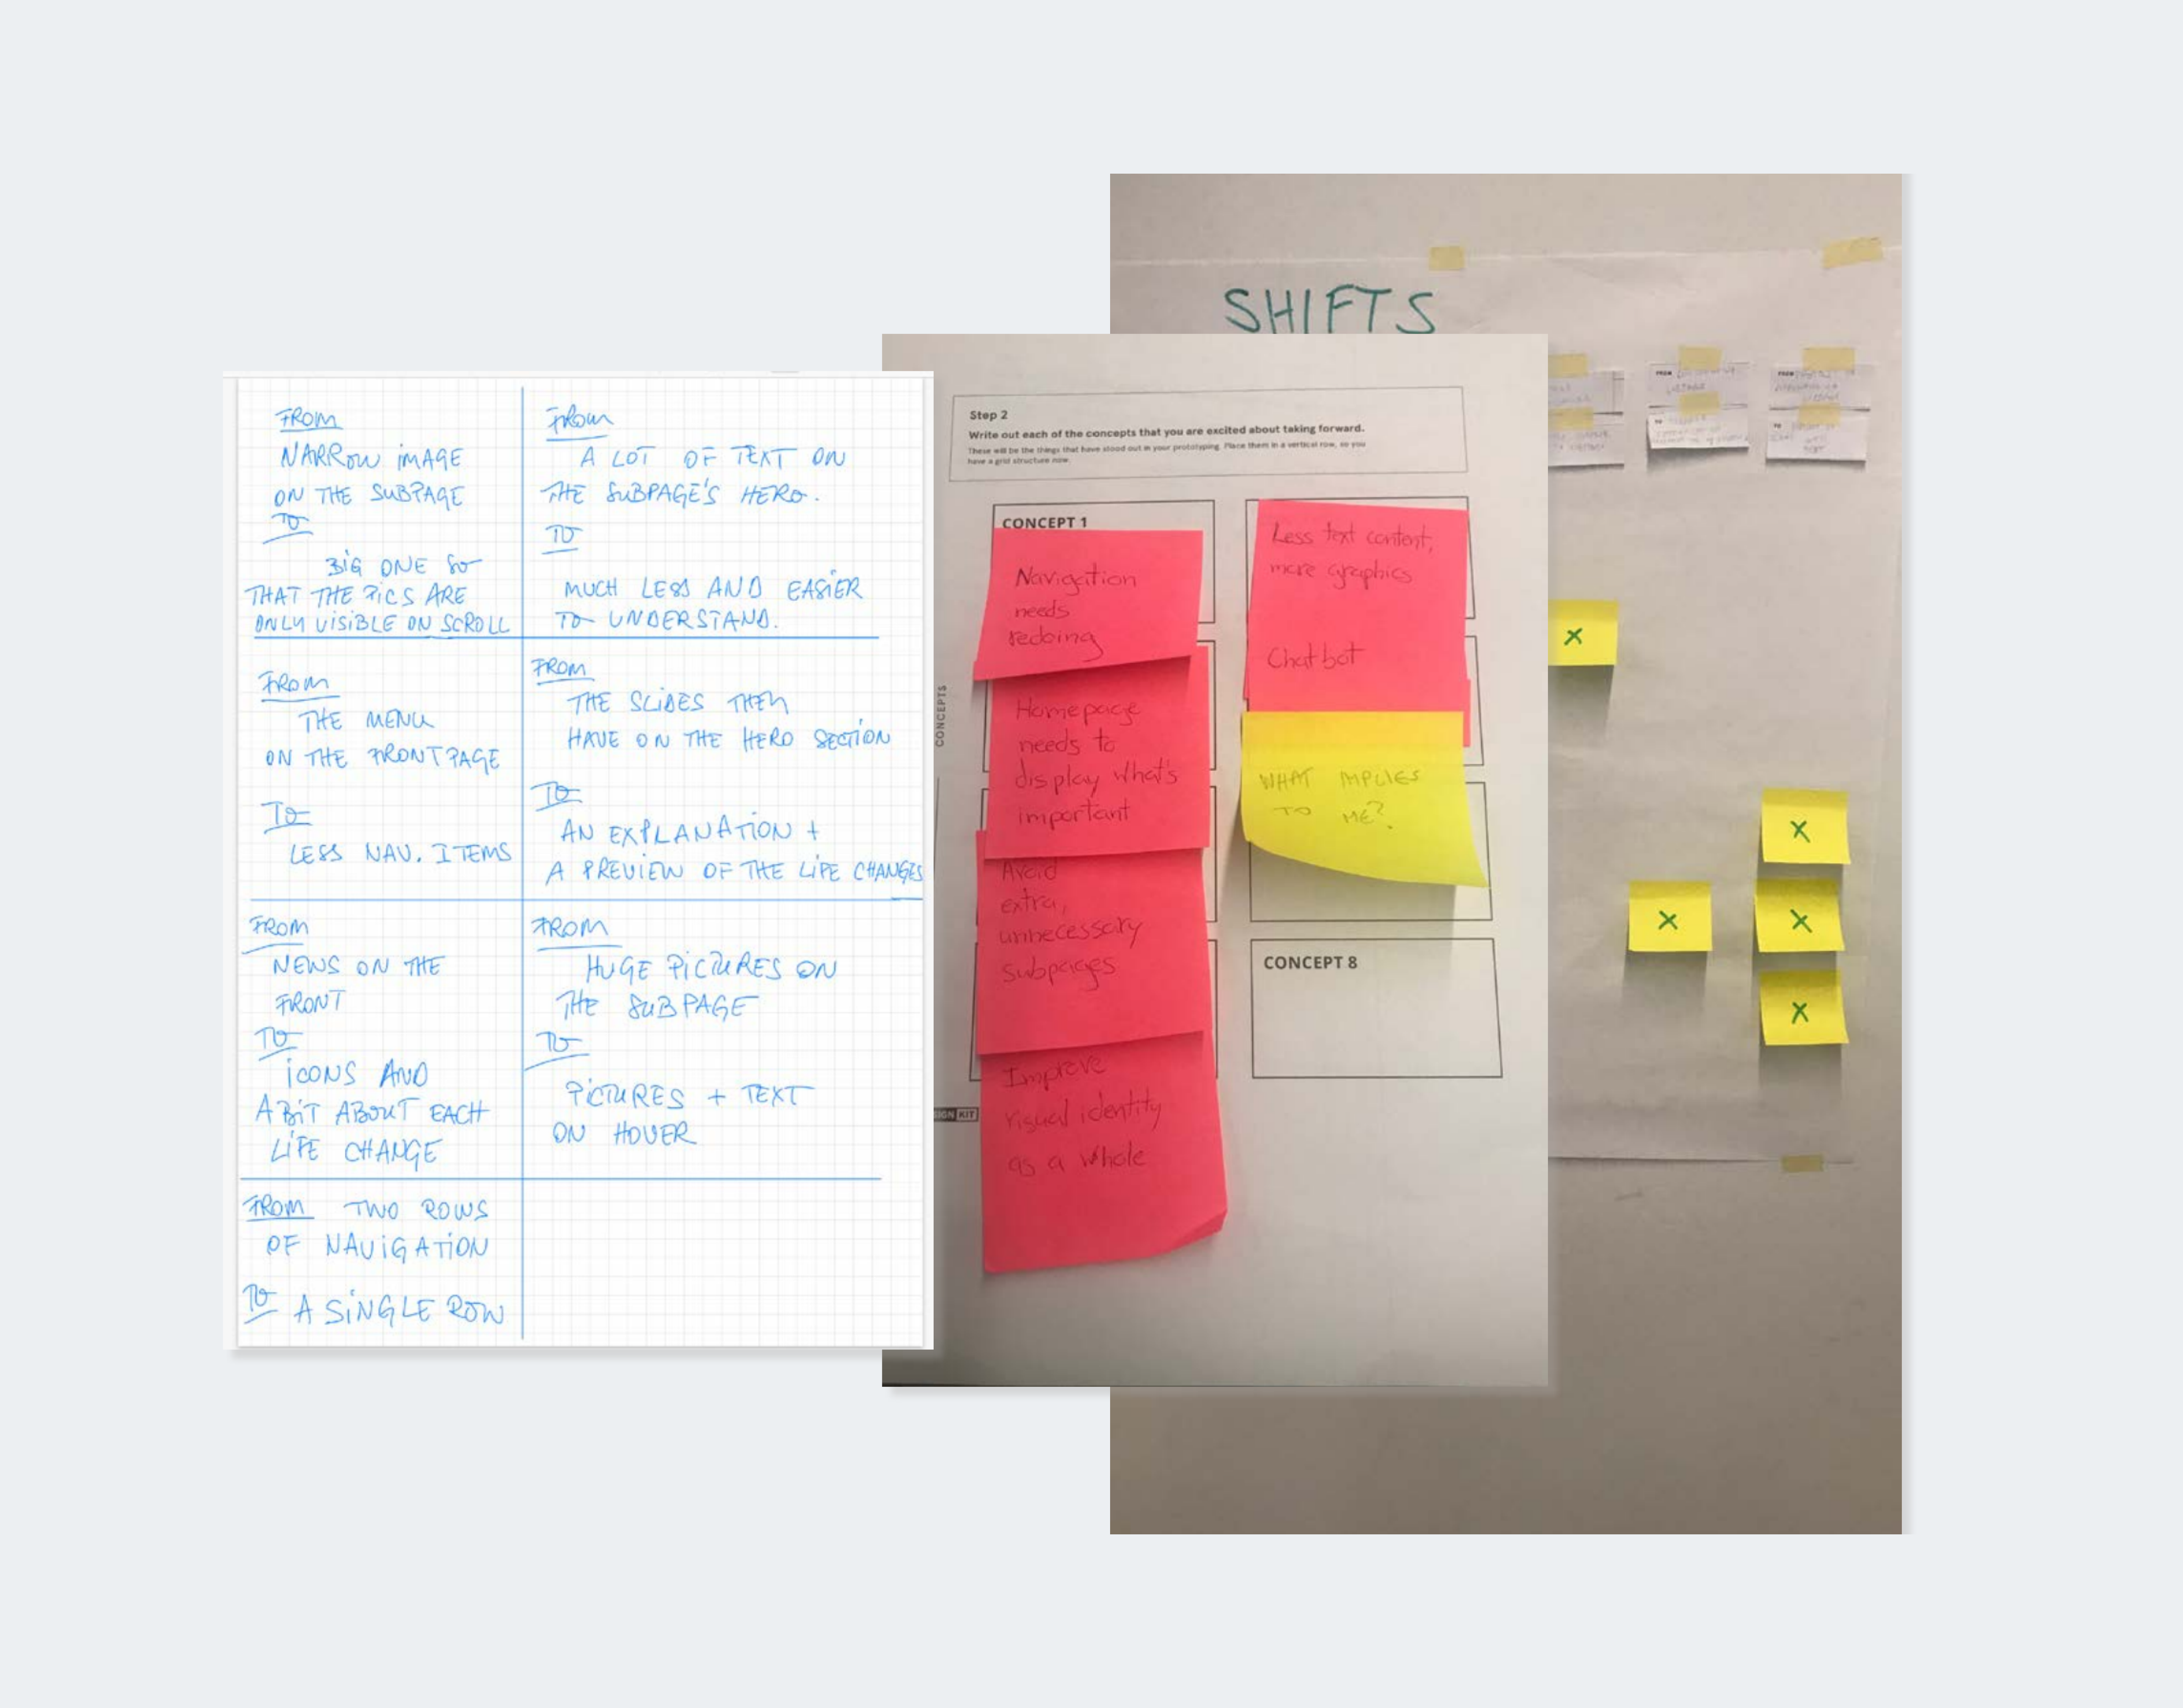 FROM
NARROW IMAGE
ON THE SUBPAGE
TO
BIG ONE SO
THAT THE PICS ARE
ONLY VISIBLE ON SCROLL
FROM
A LOT OF TEXT ON
THE SUBPAGE'S HERO.
TO
MUCH LESS AND EASIER
TO UNDERSTAND.
FROM
THE MENU
ON THE FRONTPAGE
TO
LESS NAV. ITEMS
FROM
THE SLIDES THEY
HAVE ON THE HERO SECTION
TO
AN EXPLANATION +
A PREVIEW OF THE LIFE CHANGES
FROM
NEWS ON THE
FRONT
TO
ICONS AND
A BIT ABOUT EACH
LIFE CHANGE
FROM
HUGE PICTURES ON
THE SUBPAGE
TO
PICTURES + TEXT
ON HOVER
FROM TWO ROWS
OF NAVIGATION
TO A SINGLE ROW
Step 2
Write out each of the concepts that you are excited about taking forward.
These will be the things that have stood out in your prototyping. Place them in a vertical row, so you
have a grid structure now.
CONCEPTS
CONCEPT 1
Navigation
needs
redoing
Homepage
needs to
display what's
important
Avoid
extra,
unnecessary
subpages
Improve
visual identity
as a whole
Less text content,
more graphics
Chatbot
WHAT IMPLIES
TO ME?
CONCEPT 8
KIT
SHIFTS
FROM
TO
FROM
TO
X
X
X
X
X